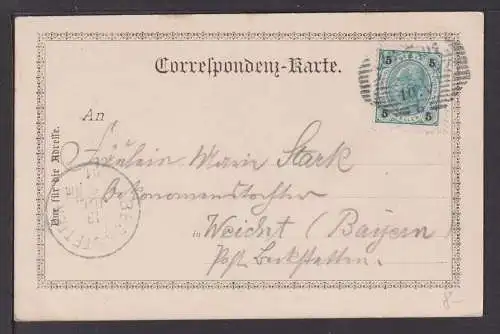 Correspondenz-Karte.
5 5
10
5 5
An
Fräulein Marie Stark
Oekonomenstochter
in Weicht (Bayern
Post Beckstetten.
Nur für die Adresse.
8-